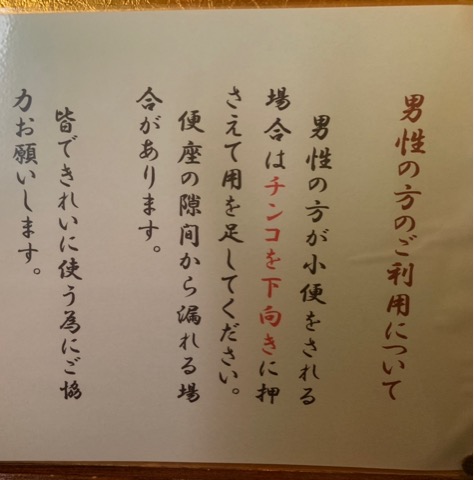 男性の方のご利用について
男性の方が小便をされる
場合はチンコを下向きに押
さえて用を足してください。
便座の隙間から漏れる場
合があります。
皆できれいに使う為にご協
力お願いします。